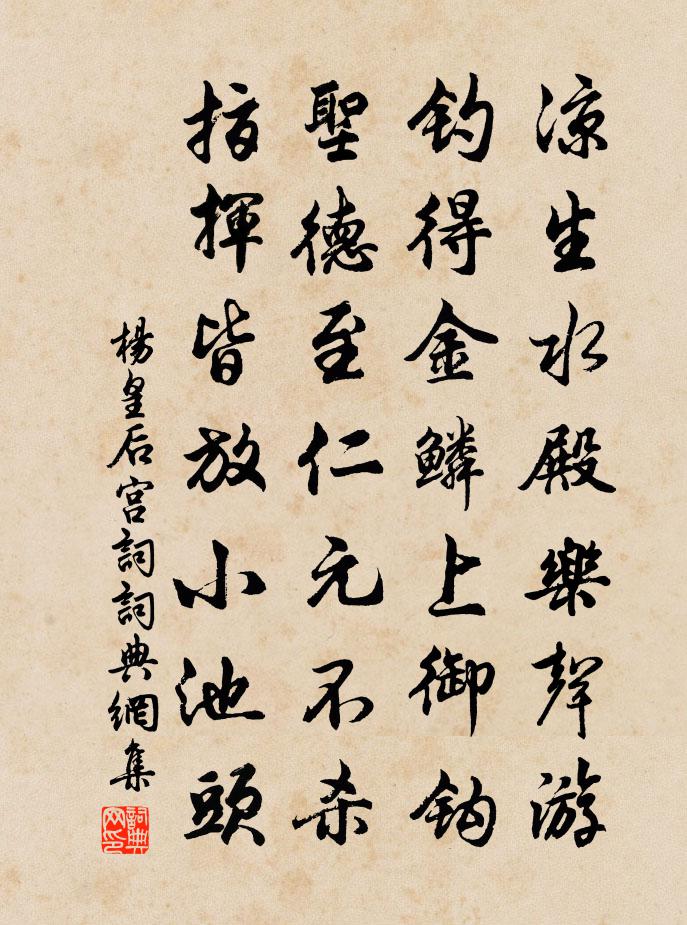 涼生水殿樂聲游
釣得金鱗上御鈎
聖德至仁元不殺
指揮皆放小池頭
楊皇后宮詞詞典網集
詞典网印